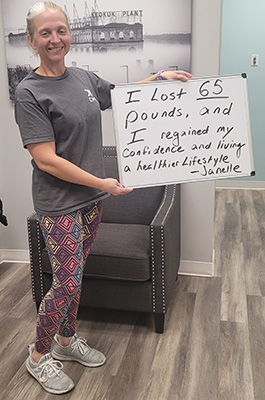 KEOKUK PLANT
I Lost 65
Pounds, and
I regained my
Confidence and living
a healthier Lifestyle
-Janelle